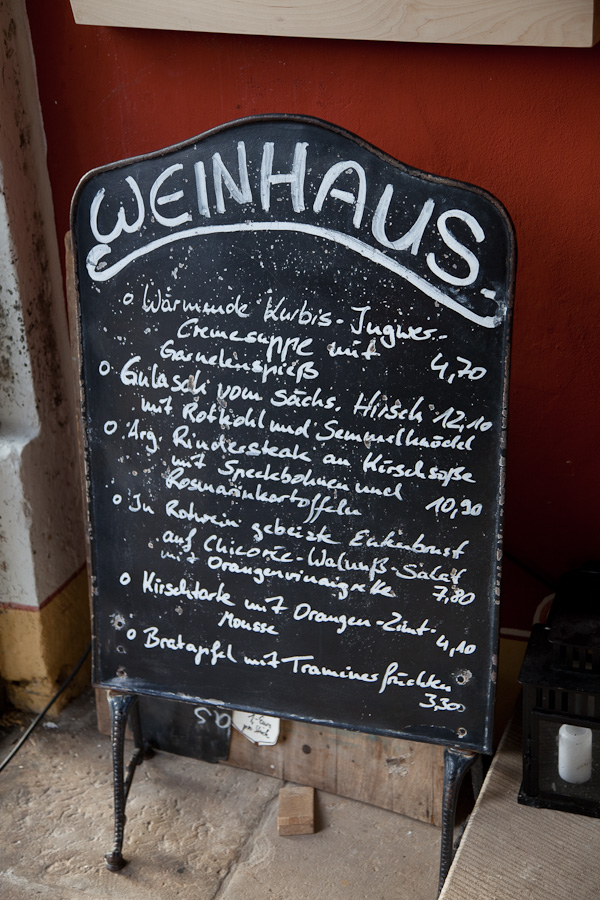 WEINHAUS
o Wärmende Kürbis-Ingwer-
Cremesuppe mit
Garnelenspieß 4,70
o Gulasch vom sächs. Hirsch 12,10
mit Rotkohl und Semmelknödel
o Arg. Rindersteak an Kirschsoße
mit Speckbohnen und
Rosmarinkartoffeln 10,90
o In Rotwein gebeizte Entenbrust
auf Chicorée-Walnuß-Salat
mit Orangenvinaigrette 7,80
o Kirschtorte mit Orangen-Zimt-
Mousse 4,10
o Bratapfel mit Traminerfrüchten
3,30